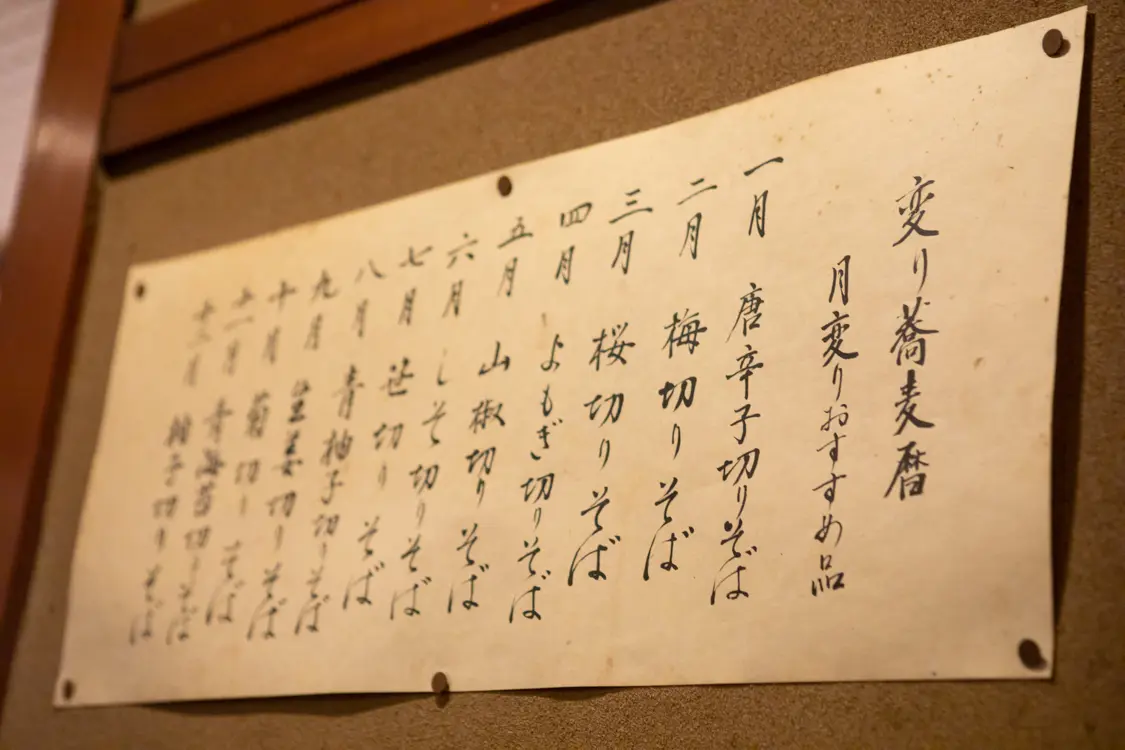 変り蕎麦暦
月変りおすすめ品
一月 唐辛子切りそば
二月 梅切りそば
三月 桜切りそば
四月 よもぎ切りそば
五月 山椒切りそば
六月 しそ切りそば
七月 笹切りそば
八月 青柚子切りそば
九月 生姜切りそば
十月 菊切りそば
十一月 青海苔切りそば
十二月 柚子切りそば